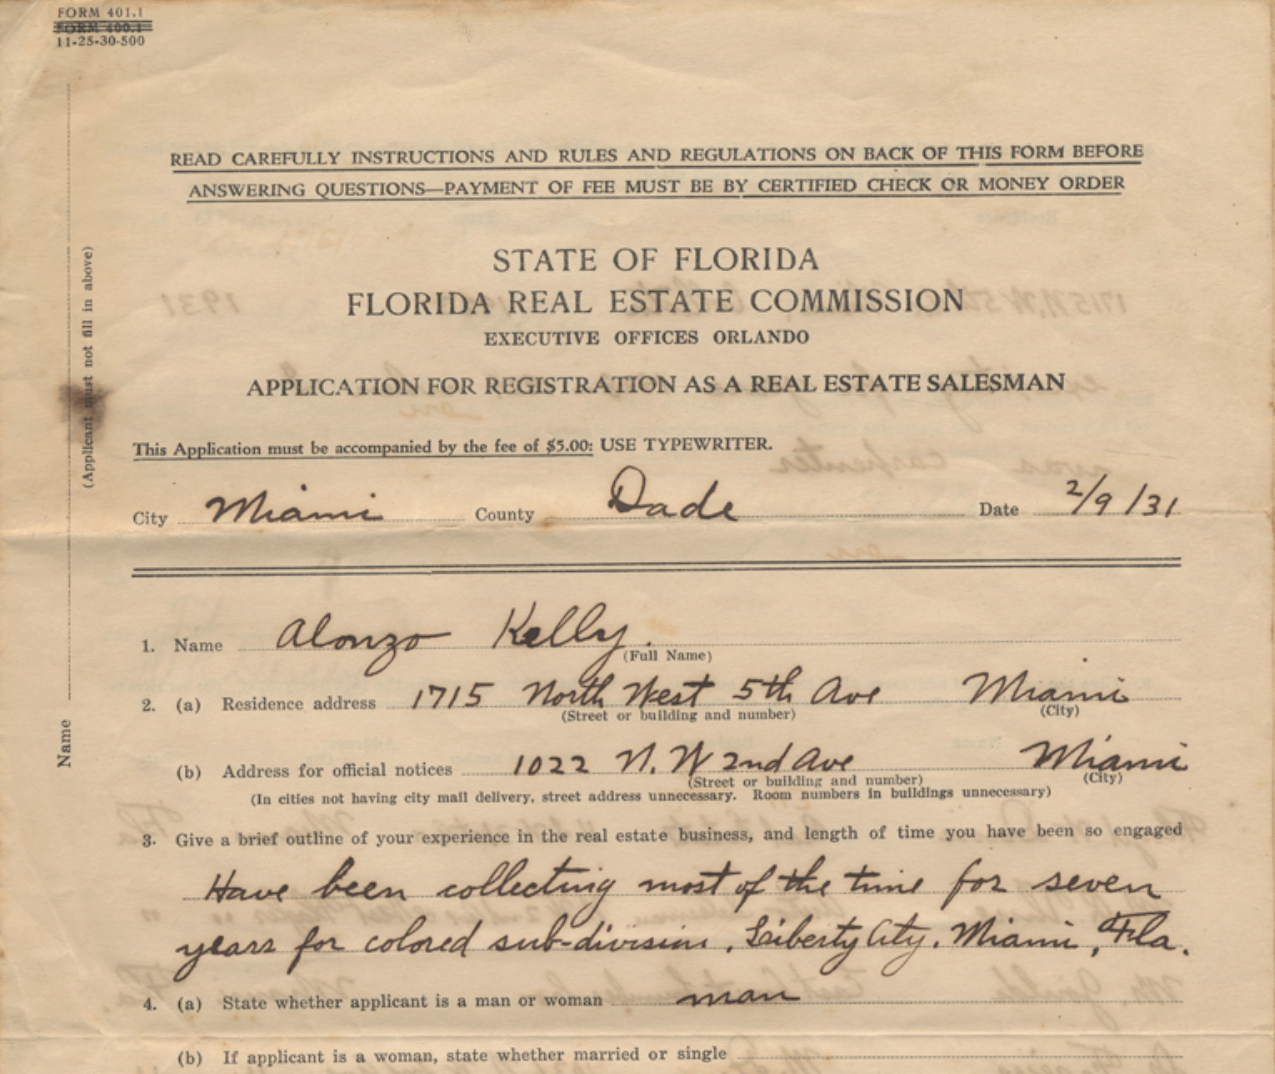 FORM 401.1
FORM 400.1
11-25-30-500
READ CAREFULLY INSTRUCTIONS AND RULES AND REGULATIONS ON BACK OF THIS FORM BEFORE
ANSWERING QUESTIONS—PAYMENT OF FEE MUST BE BY CERTIFIED CHECK OR MONEY ORDER
STATE OF FLORIDA
FLORIDA REAL ESTATE COMMISSION
EXECUTIVE OFFICES ORLANDO
APPLICATION FOR REGISTRATION AS A REAL ESTATE SALESMAN
This Application must be accompanied by the fee of $5.00: USE TYPEWRITER.
City Miami County Dade Date 2/9/31
Name
(Applicant must not fill in above)
1. Name Alonzo Kelly.
(Full Name)
2. (a) Residence address 1715 North West 5th Ave Miami
(Street or building and number) (City)
(b) Address for official notices 1022 N.W 2nd Ave Miami
(Street or building and number) (City)
(In cities not having city mail delivery, street address unnecessary. Room numbers in buildings unnecessary)
3. Give a brief outline of your experience in the real estate business, and length of time you have been so engaged
Have been collecting most of the time for seven
years for colored sub-division, Liberty City, Miami, Fla.
4. (a) State whether applicant is a man or woman man
(b) If applicant is a woman, state whether married or single